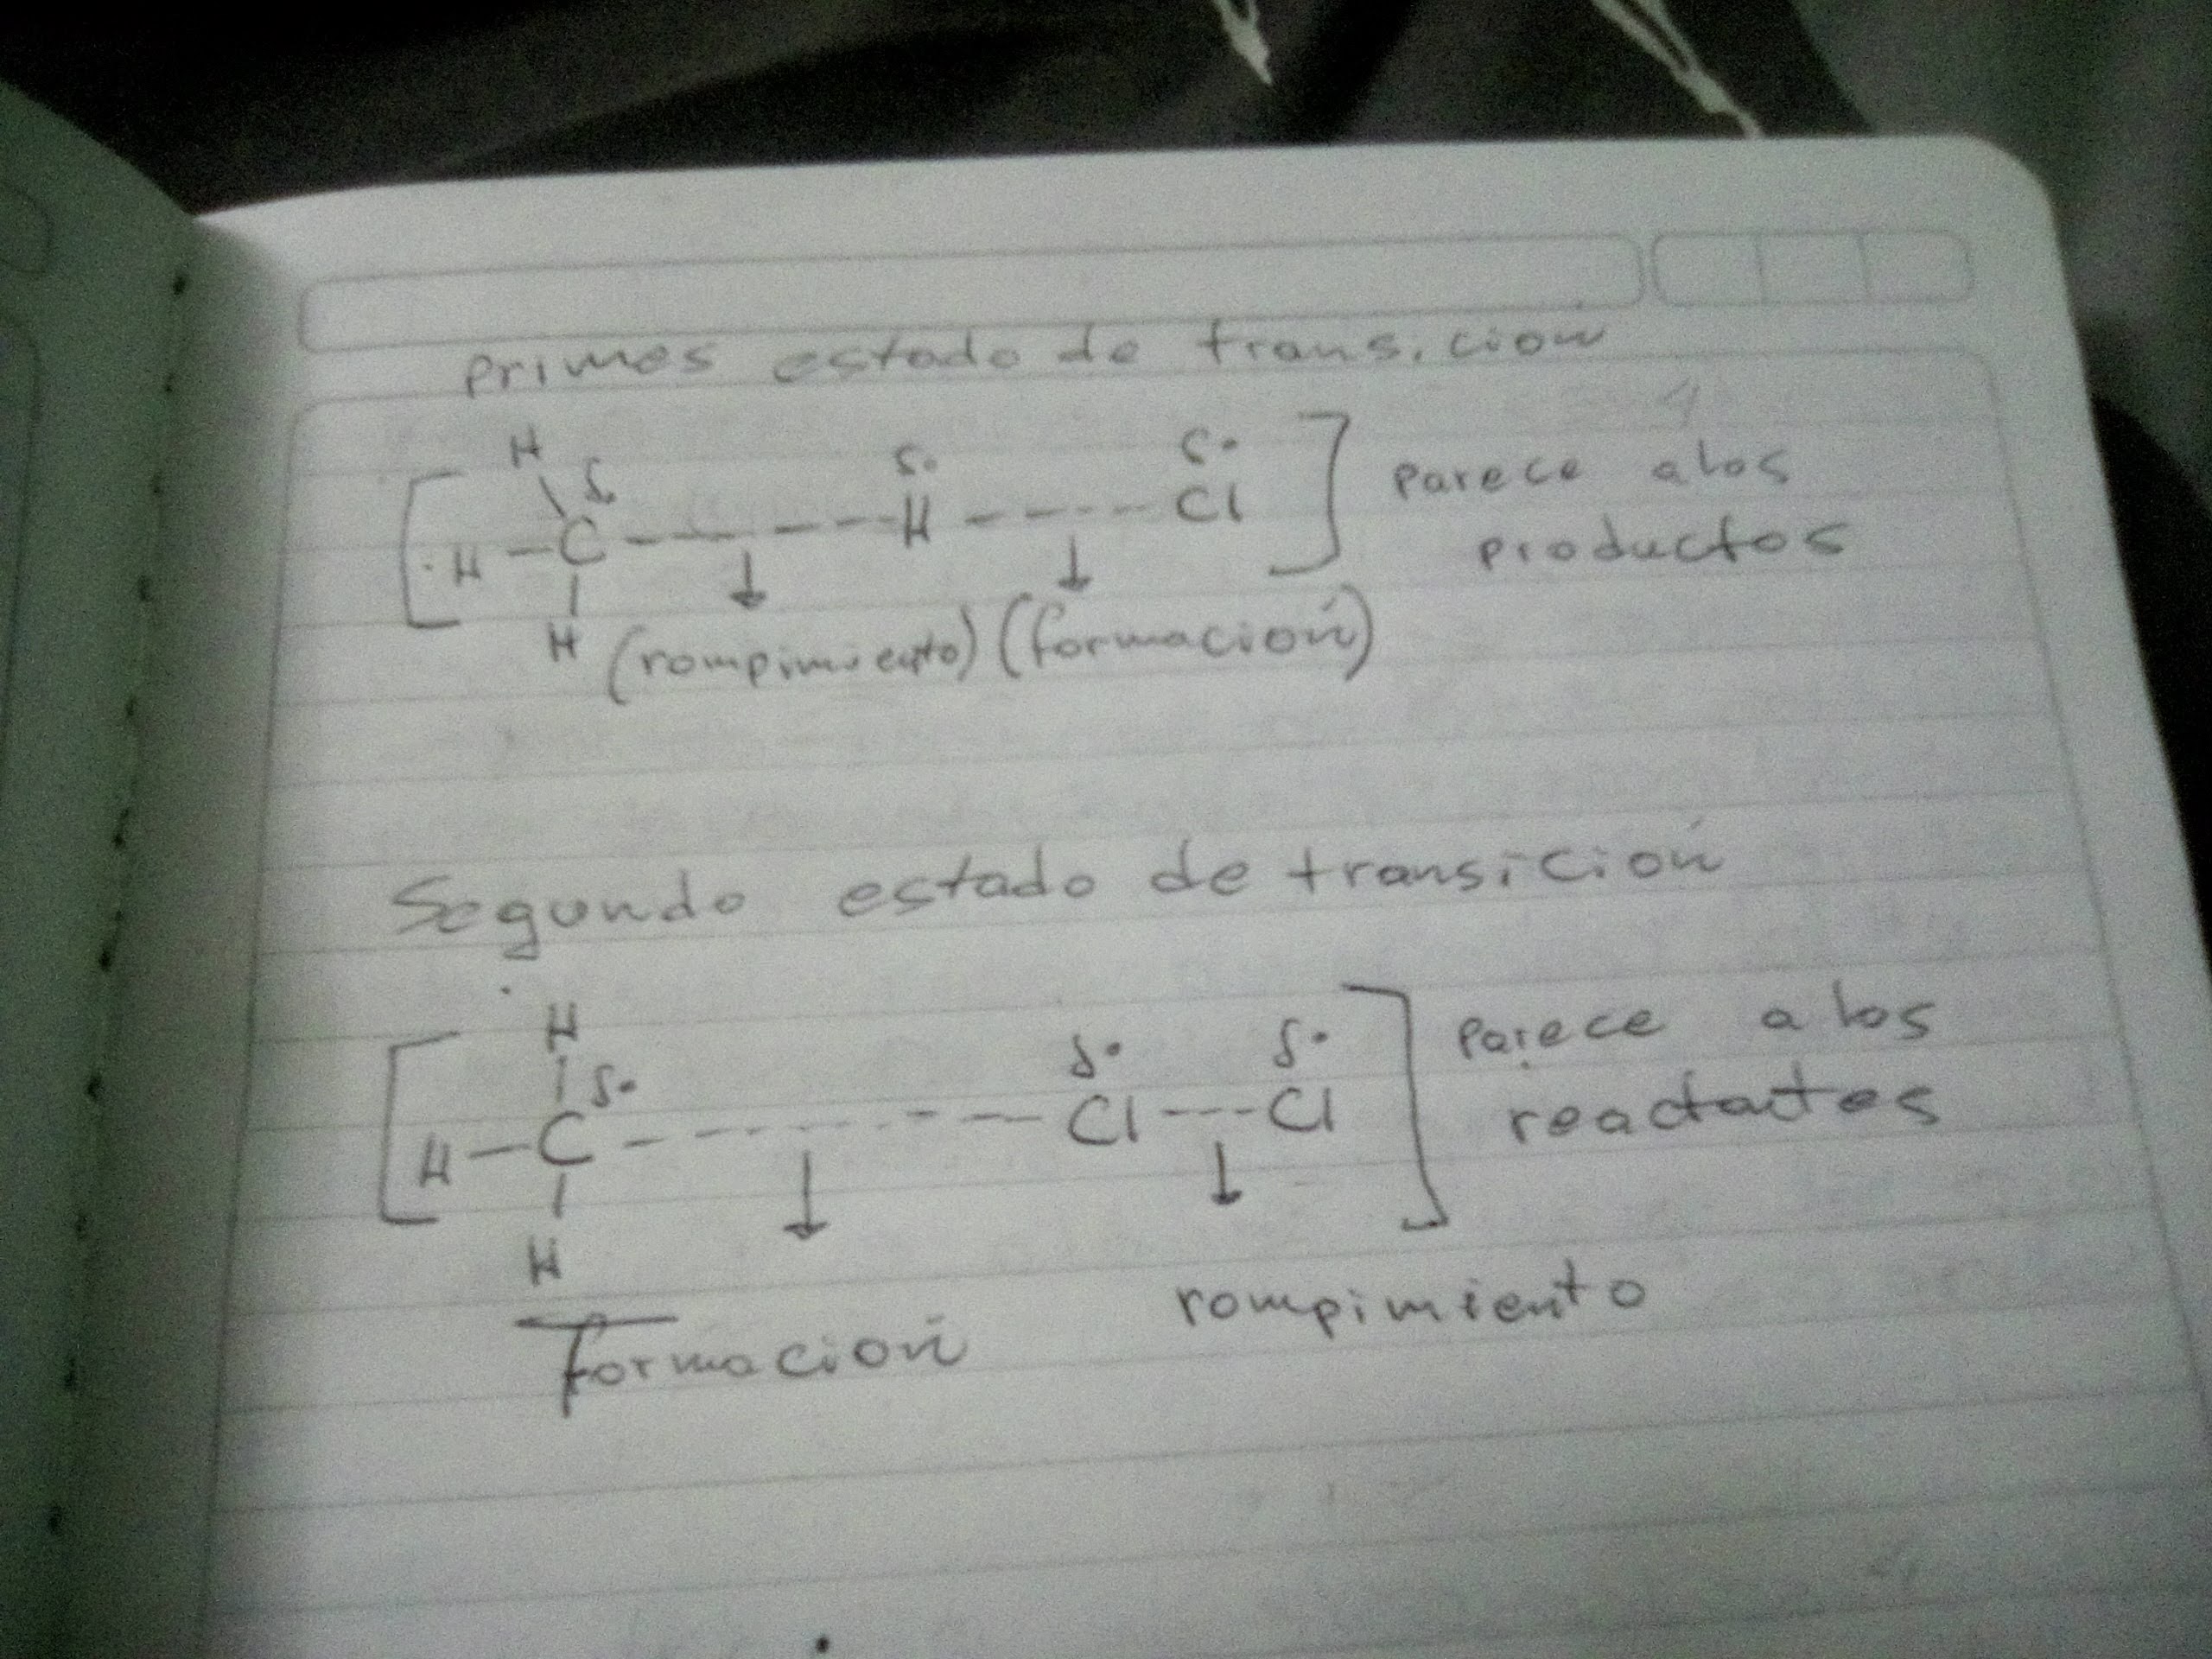 primes estado de transición
H δ• δ• δ•
H – C - - - - - - H - - - - - Cl ] Parece a los
↓ ↓ productos
H (rompimiento) (formación)
Segundo estado de transición
H
δ• δ• δ• Parece a los
H – C - - - - - - - - Cl - - - Cl reactates
↓ ↓
H
formación rompimiento